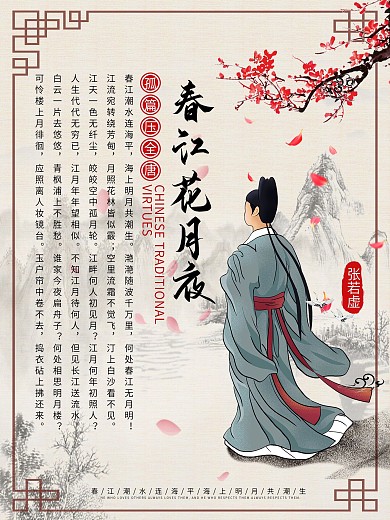 春江花月夜
孤篇压全唐
CHINESE TRADITIONAL
VIRTUES
张若虚
春江潮水连海平，海上明月共潮生。滟滟随波千万里，何处春江无月明！
江流宛转绕芳甸，月照花林皆似霰；空里流霜不觉飞，汀上白沙看不见。
江天一色无纤尘，皎皎空中孤月轮。江畔何人初见月？江月何年初照人？
人生代代无穷已，江月年年望相似。不知江月待何人，但见长江送流水。
白云一片去悠悠，青枫浦上不胜愁。谁家今夜扁舟子？何处相思明月楼？
可怜楼上月徘徊，应照离人妆镜台。玉户帘中卷不去，捣衣砧上拂还来。
春/江/潮/水/连/海/平/海/上/明/月/共/潮/生
HE WHO LOVES OTHERS ALWAYS LOVES THEM, AND HE WHO RESPECTS THEM ALWAYS RESPECTS THEM